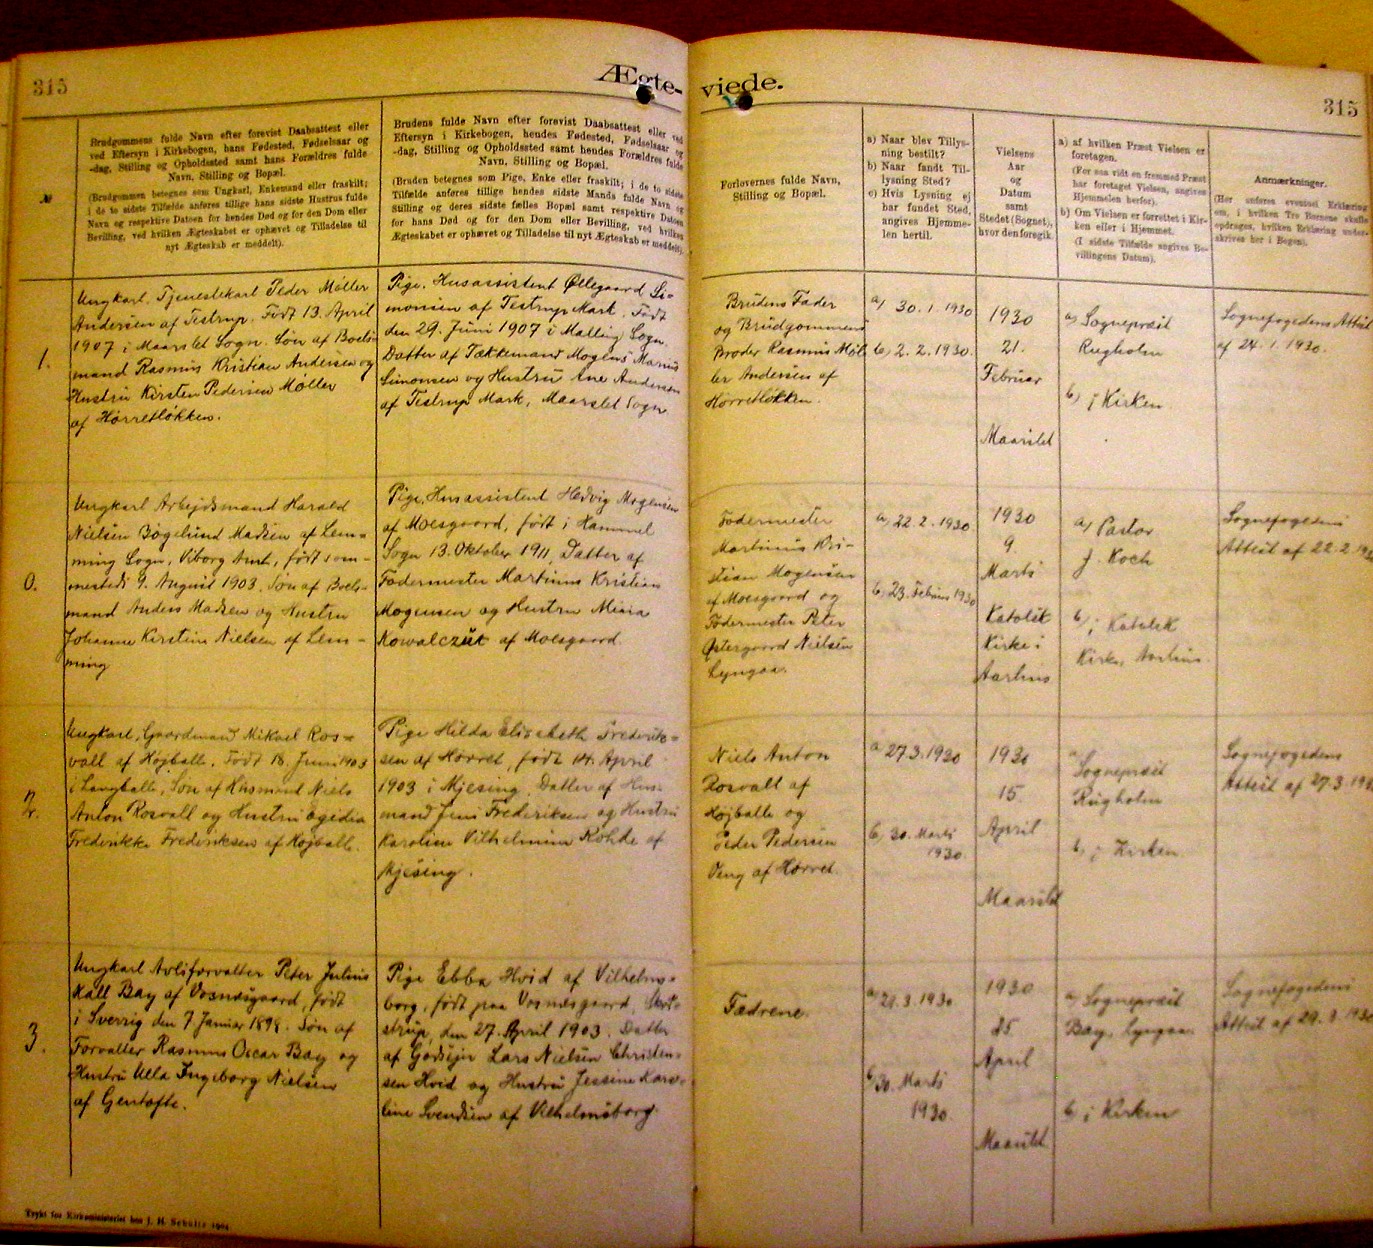 315
Ægte-
viede.
315
Brudgommens fulde Navn efter forevist Daabsattest eller
ved Eftersyn i Kirkebogen, hans Fødested, Fødselsaar og
-dag, Stilling og Opholdssted samt hans Forældres fulde
Navn, Stilling og Bopæl.
(Brudgommen betegnes som Ungkarl, Enkemand eller fraskilt;
i de to sidste Tilfælde anføres tillige hans sidste Hustrus fulde
Navn og respektive Datoen for hendes Død og for den Dom eller
Bevilling, ved hvilken Ægteskabet er ophævet og Tilladelse til
nyt Ægteskab er meddelt).
Brudens fulde Navn efter forevist Daabsattest eller ved
Eftersyn i Kirkebogen, hendes Fødested, Fødselsaar og
-dag, Stilling og Opholdssted samt hendes Forældres fulde
Navn, Stilling og Bopæl.
(Bruden betegnes som Pige, Enke eller fraskilt; i de to sidste
Tilfælde anføres tillige hendes sidste Mands fulde Navn og
Stilling og deres sidste fælles Bopæl samt respektive Datoen
for hans Død og for den Dom eller Bevilling, ved hvilken
Ægteskabet er ophævet og Tilladelse til nyt Ægteskab er meddelt).
Forlovernes fulde Navn,
Stilling og Bopæl.
a) Naar blev Tillys-
ning bestilt?
b) Naar fandt Til-
lysning Sted?
c) Hvis Lysning ej
har fundet Sted,
angives Hjemme-
len hertil.
Vielsens
Aar
og
Datum
samt
Stedet (Sognet),
hvor den foregik.
a) af hvilken Præst Vielsen er
foretagen.
(For saa vidt en fremmed Præst
har foretaget Vielsen, angives
Hjemmelen herfor).
b) Om Vielsen er forrettet i Kir-
ken eller i Hjemmet.
(I sidste Tilfælde angives Be-
villingens Datum).
Anmærkninger.
(Her anføres eventuel Erklæring
om, i hvilken Tro Børnene skulle
opdrages, hvilken Erklæring under-
skrives her i Bogen).
1.
Ungkarl, Tjenestekarl Peder Møller
Andersen af Testrup. Født 13. April
1907 i Maarslet Sogn. Søn af Boels-
mand Rasmus Kristian Andersen og
Hustru Kirsten Pedersen Møller
af Hørretløkken.
Pige, Husassistent Øllegaard Si-
monsen af Testrup Mark. Født
den 29. Juni 1907 i Malling Sogn.
Datter af Tækkemand Mogens Marius
Simonsen og Hustru Ane Andersen
af Testrup Mark, Maarslet Sogn
Brudens Fader
og Brudgommens
Broder Rasmus Møl-
ler Andersen af
Hørretløkken.
a) 30. 1. 1930
b) 2. 2. 1930.
1930
21.
Februar
Maarslet
a) Sognepræst
Rugholm
b) i Kirken.
Sognefogedens Attest
af 24. 1. 1930.
0.
Ungkarl Arbejdsmand Harald
Nielsen Bøgelund Madsen af Lem-
ming Sogn, Viborg Amt, født som-
mestedi 9. August 1903. Søn af Boels-
mand Anders Madsen og Hustru
Johanne Kirstine Nielsen af Lem-
ming
Pige, Husassistent Hedvig Mogensen
af Moesgaard, født i Hammel
Sogn 13. Oktober 1911, Datter af
Fodermester Martinus Kristian
Mogensen og Hustru Maria
Kowalczuk af Moesgaard.
Fodermester
Martinus Kri-
stian Mogensen
af Moesgaard og
Fodermester Peter
Østergaard Nielsen
Lyngaa.
a) 22. 2. 1930
b) 23. Februar 1930
1930
9.
Marts
Katolsk
Kirke i
Aarhus
a) Pastor
J. Koch
b) i Katolsk
Kirke, Aarhus.
Sognefogedens
Attest af 22. 2. 1930
2.
Ungkarl, Gaardmand Mikael Ros-
vall af Højballe. Født 18. Juni 1903
i Langballe, Søn af Husmand Niels
Anton Rosvall og Hustru Egidia
Frederikke Frederiksen af Højballe.
Pige Hilda Elisabeth Frederik-
sen af Hørret, født 14. April
1903 i Mjesing. Datter af Hus-
mand Jens Frederiksen og Hustru
Karoline Vilhelmine Rohde af
Mjesing.
Niels Anton
Rosvall af
Højballe og
Peder Pedersen
Veng af Hørret.
a 27. 3. 1930
b, 30. Marts
1930.
1930
15.
April
Maarslet
a,
Sognepræst
Rugholm
b, i Kirken.
Sognefogedens
Attest af 27. 3. 1930
3.
Ungkarl Avlsforvalter Peter Julius
Kall Bay af Vosnæsgaard, født
i Sverrig den 7 Januar 1898. Søn af
Forvalter Rasmus Oscar Bay og
Hustru Ulla Ingeborg Nielsen
af Gentofte.
Pige Ebba Hvid af Vilhelms-
borg, født paa Vosnæsgaard,
den 27. April 1903. Datter
af Godsejer Lars Nielsen Christen-
sen Hvid og Hustru Jessine Karo-
line Svendsen af Vilhelmsborg.
Fædrene.
a, 29. 3. 1930
b, 30. Marts
1930.
1930
25
April
Maarslet.
a, Sognepræst
Bay, Lyngaa.
b, i Kirken
Sognefogedens
Attest af 29. 3. 1930
Trykt for Kirkeministeriet hos J. H. Schultz